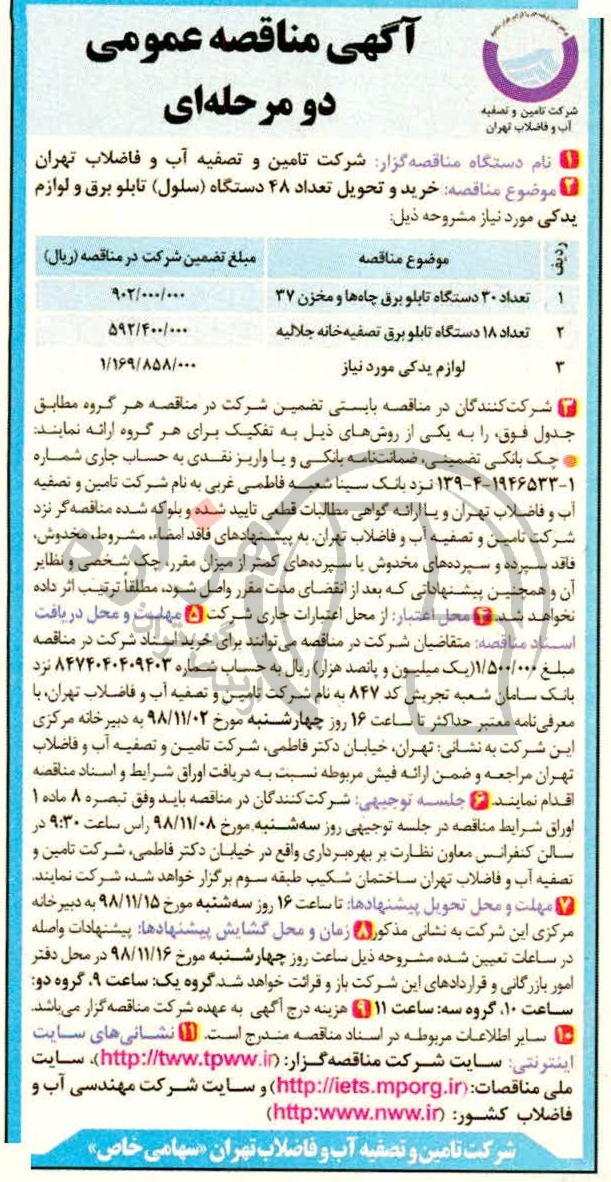 آگهی مناقصه عمومی
دو مرحله‌ای
شرکت تامین و تصفیه
آب و فاضلاب تهران
۱ نام دستگاه مناقصه‌گزار: شرکت تامین و تصفیه آب و فاضلاب تهران
۲ موضوع مناقصه: خرید و تحویل تعداد ۴۸ دستگاه (سلول) تابلو برق و لوازم
یدکی مورد نیاز مشروحه ذیل:
ردیف موضوع مناقصه مبلغ تضمین شرکت در مناقصه (ریال)
۱ تعداد ۳۰ دستگاه تابلو برق چاه‌ها و مخزن ۳۷ ۹۰۲/۰۰۰/۰۰۰
۲ تعداد ۱۸ دستگاه تابلو برق تصفیه‌خانه جلالیه ۵۹۲/۴۰۰/۰۰۰
۳ لوازم یدکی مورد نیاز ۱/۱۶۹/۸۵۸/۰۰۰
۳ شرکت‌کنندگان در مناقصه بایستی تضمین شرکت در مناقصه هر گروه مطابق
جدول فوق، را به یکی از روش‌های ذیل به تفکیک برای هر گروه ارائه نمایند:
● چک بانکی تضمینی، ضمانت‌نامه بانکی و یا واریز نقدی به حساب جاری شماره
۱۳۹-۴-۱۹۴۶۵۳۳-۱ نزد بانک سینا شعبه فاطمی غربی به نام شرکت تامین و تصفیه
آب و فاضلاب تهران و یا ارائه گواهی مطالبات قطعی تایید شده و بلوکه شده مناقصه‌گر نزد
شرکت تامین و تصفیه آب و فاضلاب تهران. به پیشنهادهای فاقد امضاء، مشروط، مخدوش،
فاقد سپرده و سپرده‌های مخدوش یا سپرده‌های کمتر از میزان مقرر، چک شخصی و نظایر
آن و همچنین پیشنهاداتی که بعد از انقضای مدت مقرر واصل شود، مطلقا ترتیب اثر داده
نخواهد شد. ۴ محل اعتبار: از محل اعتبارات جاری شرکت ۵ مهلت و محل دریافت
اسناد مناقصه: متقاضیان شرکت در مناقصه می‌توانند برای خرید اسناد شرکت در مناقصه
مبلغ ۱/۵۰۰/۰۰۰(یک میلیون و پانصد هزار) ریال به حساب شماره ۸۴۷۴۰۴۰۴۰۹۴۰۳ نزد
بانک سامان شعبه تجریش کد ۸۴۷ به نام شرکت تامین و تصفیه آب و فاضلاب تهران، با
معرفی‌نامه معتبر حداکثر تا ساعت ۱۶ روز چهارشنبه مورخ ۹۸/۱۱/۰۲ به دبیرخانه مرکزی
این شرکت به نشانی: تهران، خیابان دکتر فاطمی، شرکت تامین و تصفیه آب و فاضلاب
تهران مراجعه و ضمن ارائه فیش مربوطه نسبت به دریافت اوراق شرایط و اسناد مناقصه
اقدام نمایند. ۶ جلسه توجیهی: شرکت‌کنندگان در مناقصه باید وفق تبصره ۸ ماده ۱
اوراق شرایط مناقصه در جلسه توجیهی روز سه‌شنبه مورخ ۹۸/۱۱/۰۸ راس ساعت ۹:۳۰ در
سالن کنفرانس معاون نظارت بر بهره‌برداری واقع در خیابان دکتر فاطمی، شرکت تامین و
تصفیه آب و فاضلاب تهران ساختمان شکیب طبقه سوم برگزار خواهد شد، شرکت نمایند.
۷ مهلت و محل تحویل پیشنهادها: تا ساعت ۱۶ روز سه‌شنبه مورخ ۹۸/۱۱/۱۵ به دبیرخانه
مرکزی این شرکت به نشانی مذکور ۸ زمان و محل گشایش پیشنهادها: پیشنهادات واصله
در ساعات تعیین شده مشروحه ذیل ساعت روز چهارشنبه مورخ ۹۸/۱۱/۱۶ در محل دفتر
امور بازرگانی و قراردادهای این شرکت باز و قرائت خواهد شد. گروه یک: ساعت ۹، گروه دو:
ساعت ۱۰، گروه سه: ساعت ۱۱ ۹ هزینه درج آگهی به عهده شرکت مناقصه‌گزار می‌باشد.
۱۰ سایر اطلاعات مربوطه در اسناد مناقصه مندرج است. ۱۱ نشانی‌های سایت
اینترنتی: سایت شرکت مناقصه‌گزار: (http://tww.tpww.ir)، سایت
ملی مناقصات: (http://iets.mporg.ir) و سایت شرکت مهندسی آب و
فاضلاب کشور: (http:www.nww.ir)
شرکت تامین و تصفیه آب و فاضلاب تهران «سهامی خاص»